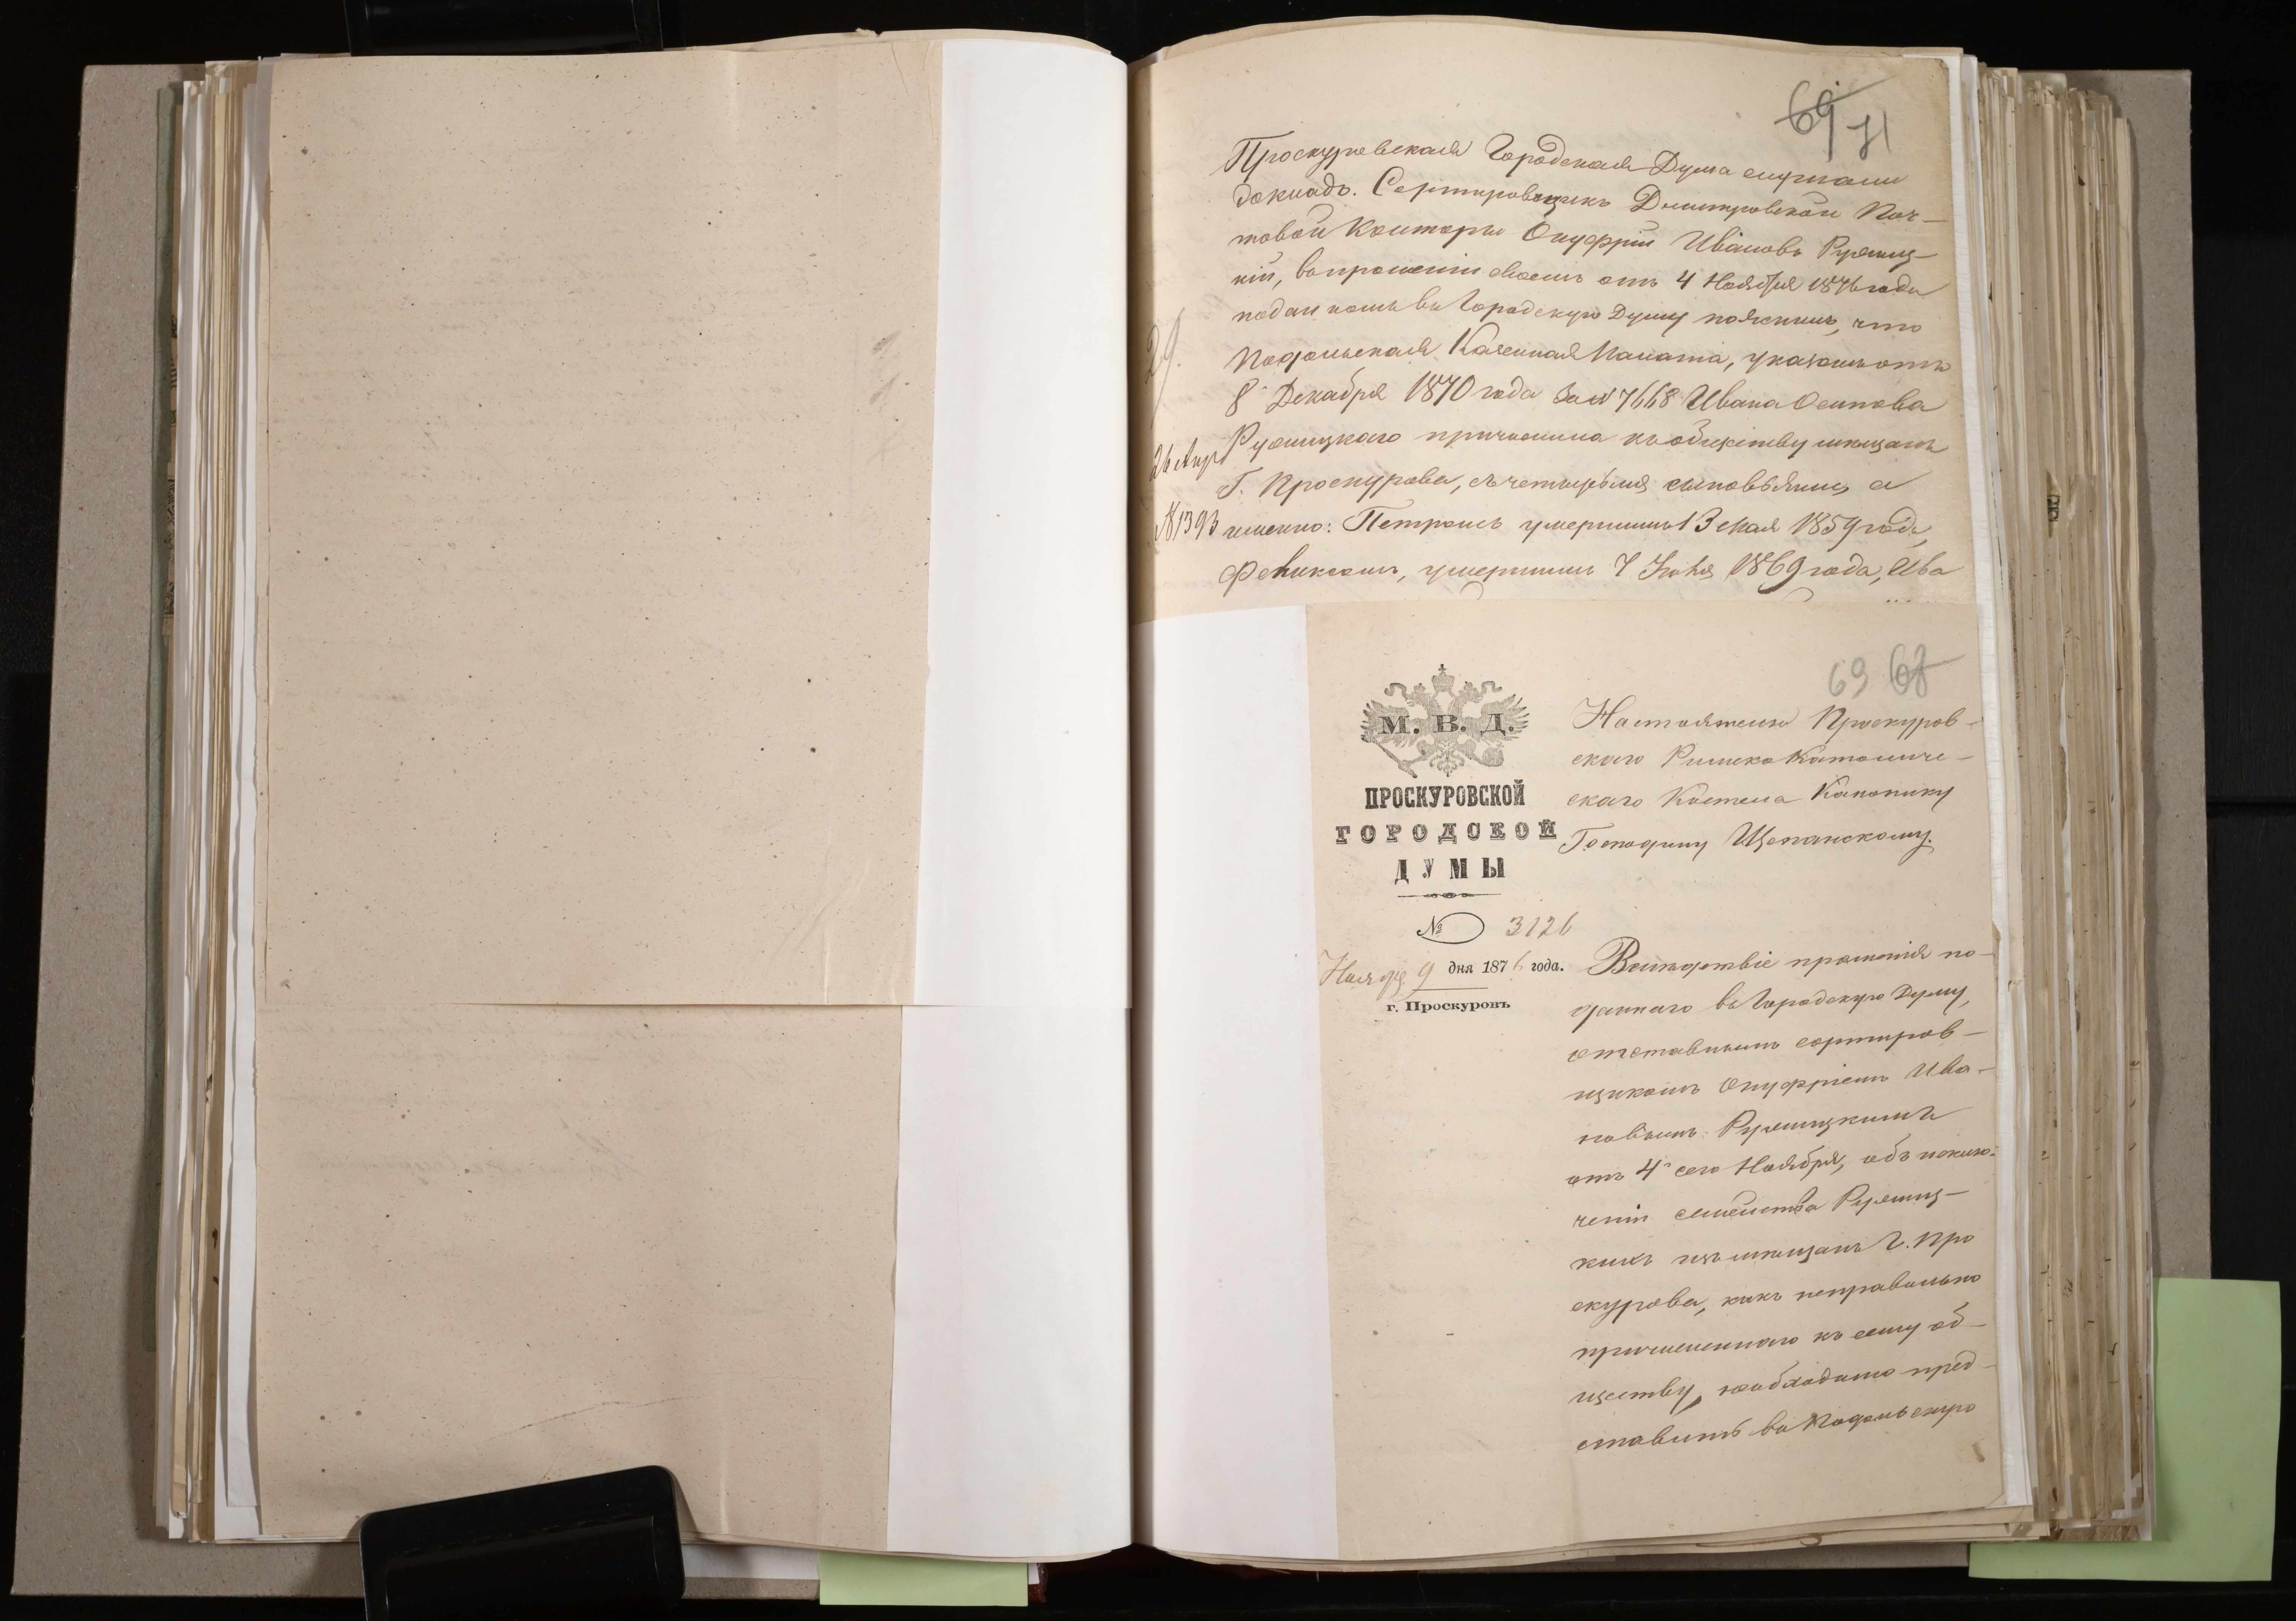 69 71
Проскуровская Городская Дума слушали
докладъ. Сортировщикъ Дмитровской Поч-
товой Конторы Онуфрій Ивановъ Рушиц-
кій, въ прошеніи своемъ отъ 4 Ноября 1876 года
поданномъ въ Городскую Думу пояснилъ, что
Подольская Казенная Палата, указомъ отъ
8 Декабря 1870 года за № 7668 Ивана Осипова
Рушицкаго причислила къ обществу мѣщанъ
Г. Проскурова, съ четырьмя сыновьями, а
именно: Петромъ умершимъ 13 мая 1859 года,
Феликсомъ, умершимъ 7 Іюля 1869 года, Ива
29.
26 Апр
№ 1393
69 68
М. В. Д.
ПРОСКУРОВСКОЙ
ГОРОДСКОЙ
ДУМЫ
№ 3126
Ноября 9 дня 1876 года.
г. Проскуровъ
Настоятелю Проскуров-
скаго Римско Католиче-
скаго Костела Канонику
Господину Щепанскому.
Вслѣдствіе прошенія по-
даннаго въ Городскую Думу,
отставнымъ сортиров-
щикомъ Онуфріемъ Ива-
новымъ Рушицкимъ
отъ 4 сего Ноября, объ исклю-
ченіи семейства Рушиц-
кихъ изъ мѣщанъ Г. Про
скурова, какъ неправильно
причисленнаго къ сему об-
ществу, необходимо пред-
ставить въ Подольскую